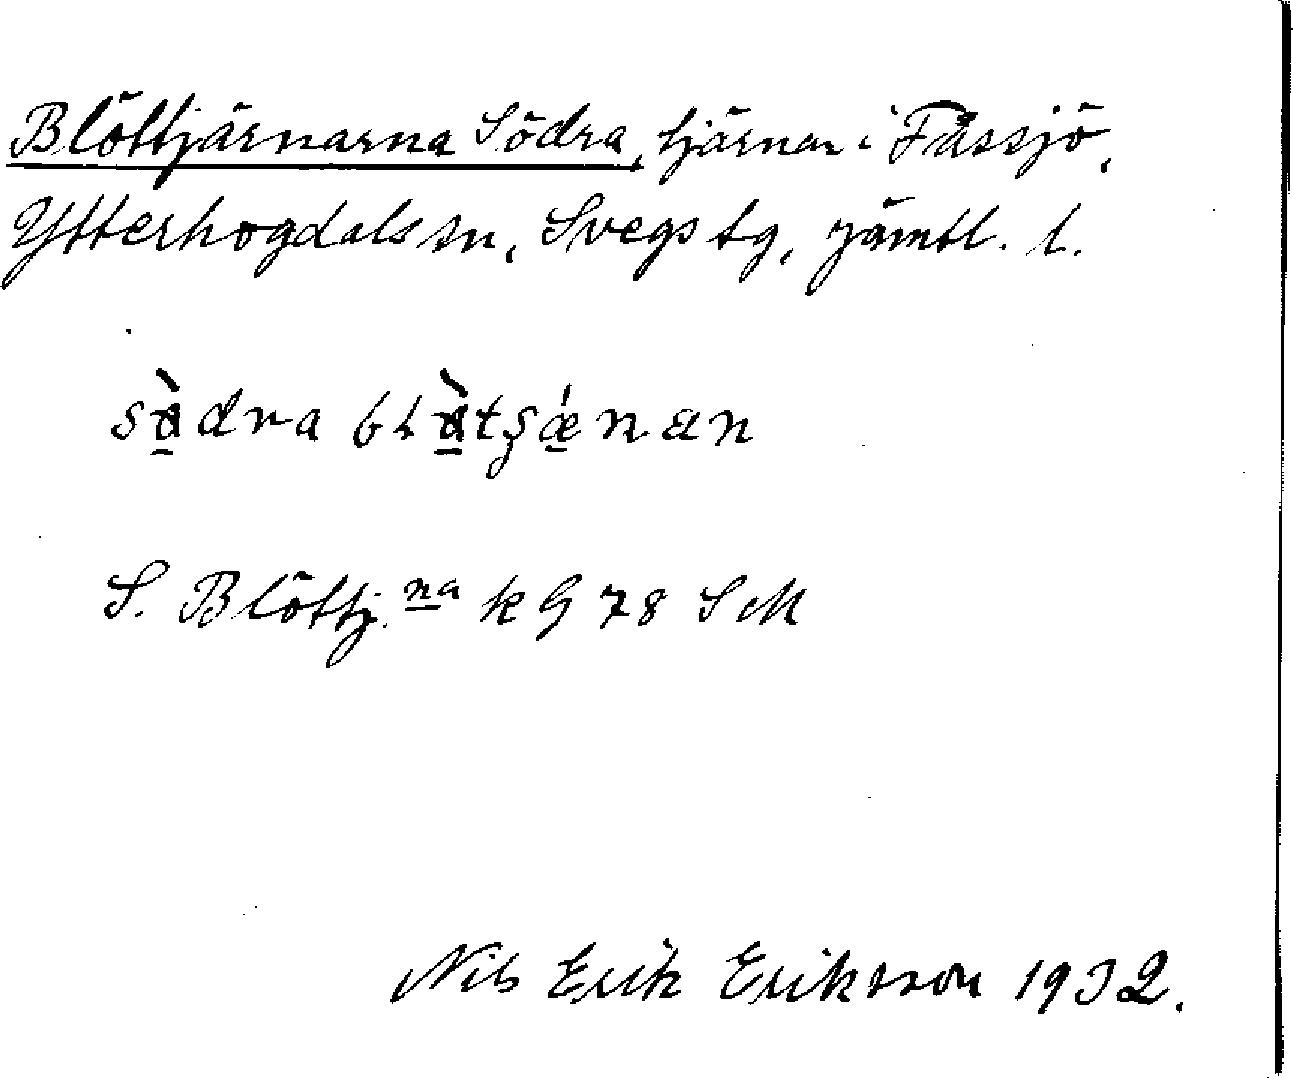 Blöttjärnarna Södra, tjärnar i Fåssjö,
Ytterhogdals sn, Svegs tg, Jämtl. l.
södra blötʂǽnan
S. Blöttj.na k G 78 SM
Nils Erik Eriksson 1932.